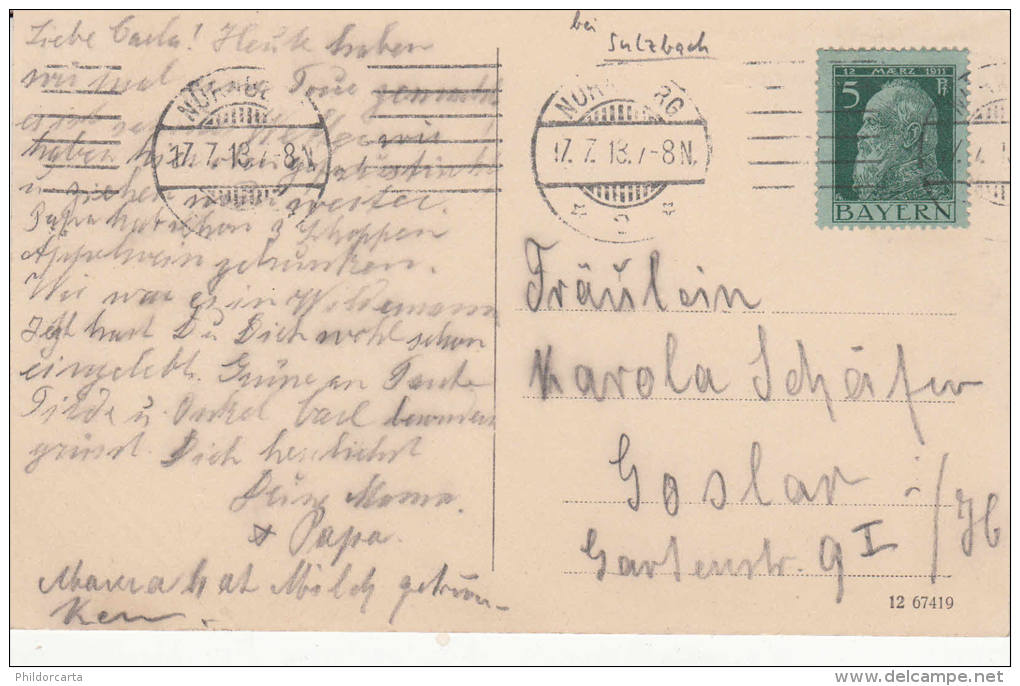 Liebe Carla! Heute haben
wir mal eine Tour gemacht
haben
u. ziehen weiter.
Papa hat schon 3 Schoppen
Äppelwein getrunken.
Wie war es in Wildemann
Jetzt hast Du Dich wohl schon
eingelebt. Grüße an Tante
Tilde u. Onkel Carl besonders
grüsst Dich herzlichst
Deine Mama.
+ Papa.
Mama hat Milch getrun-
ken.
bei
Sulzbach
NÜRNBERG
17.7.13.7-8N.
NÜRNBERG
17.7.13.7-8N.
2
12 MÆRZ 1911
5 Pf
BAYERN
Fräulein
Karola Schäfer
Goslar i/H
Gartenstr. 9 I
12 67419
Phildorcarta
delcampe.net